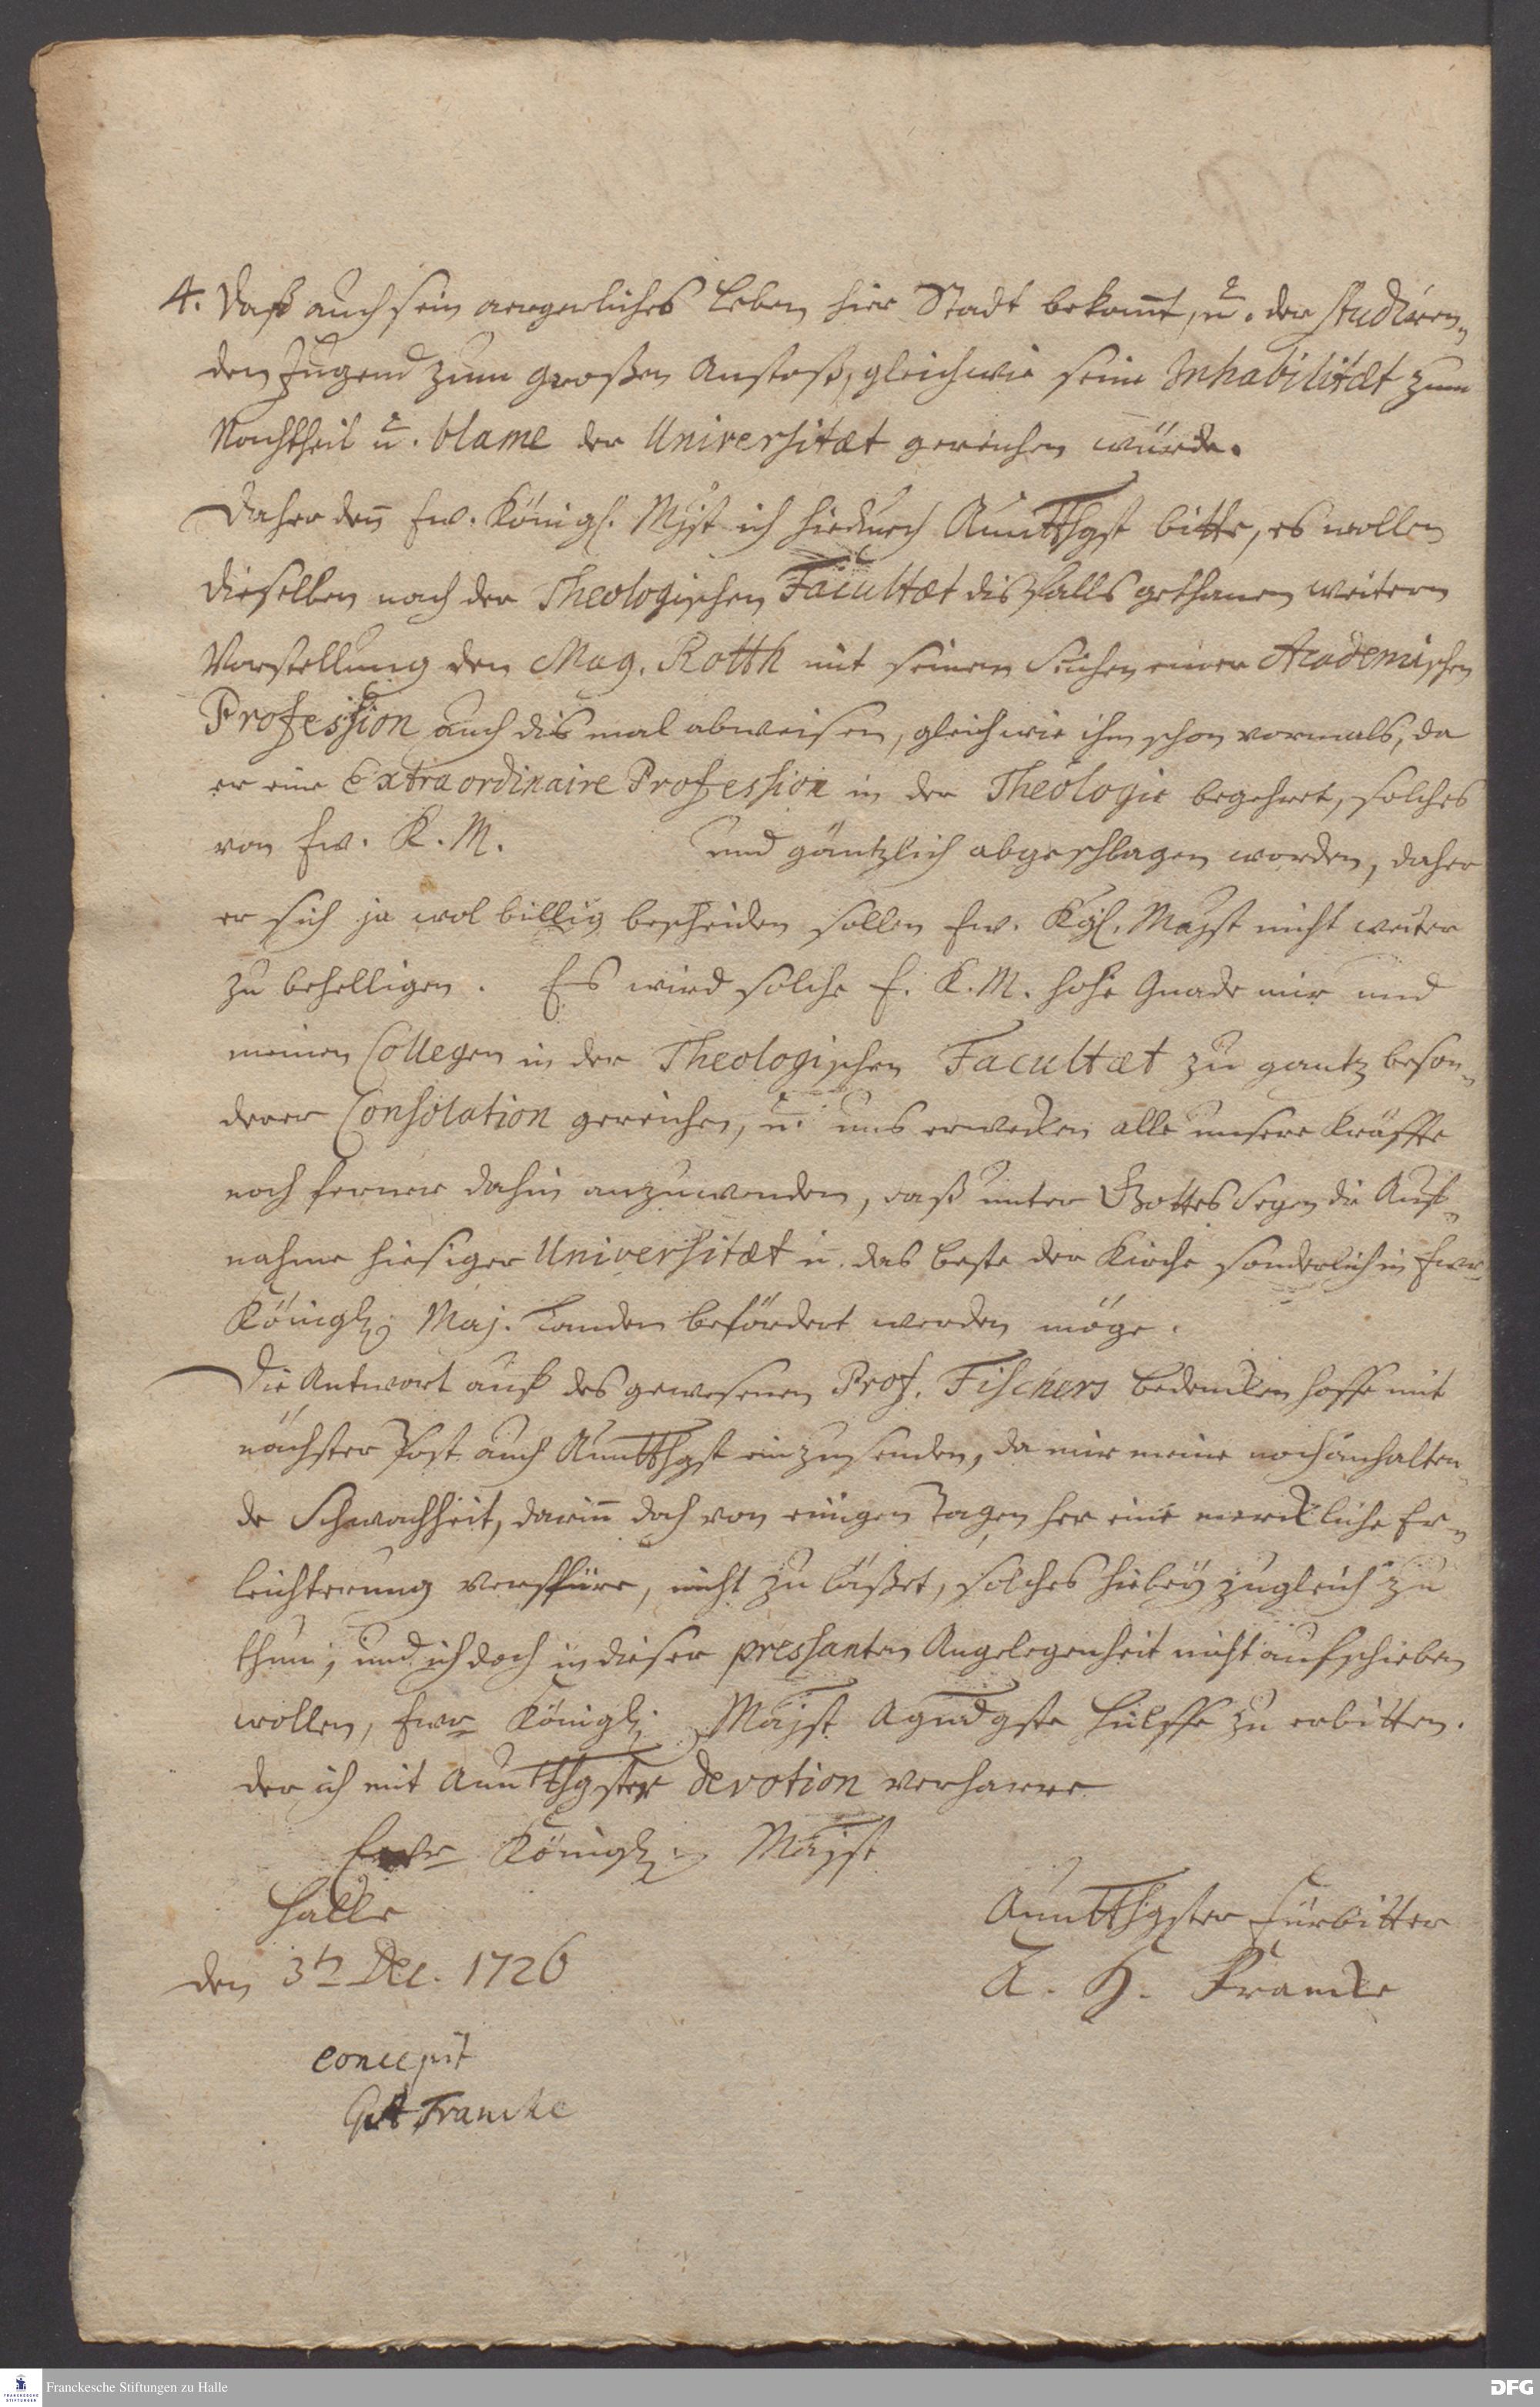 4. Daß auch sein aergerliches Leben hier Stadt bekant, u. der studiren-
den Jugend zum großen Anstoß, gleichwie seine Inhabilitæt zum
Nachtheil u. blame der Universitæt gereichen würde.
Daher den Ew. Königl. Mjst ich hiedurch Aunttthgst bitte, es wollen
dieselben nach der Theologischen Facultæt disfalls gethanen weitern
Vorstellung den Mag. Rotth mit seinem Suchen einer Academischen
Profession auch dis mal abweisen, gleich wie ihm schon vormals, da
er eine Extraordinaire Profession in der Theologie begehret, solches
von Ew. K. M. und gäntzlich abgeschlagen worden, daher
er sich ja wol billig bescheiden sollen Ew. Kgl. Majst nicht weiter
zu behelligen. Es wird solche E. K. M. hohe Gnade mir und
meinen Collegen in der Theologischen Facultæt zu gantz beson-
derer Consolation gereichen, u. uns erwecken alle unsere Kräffte
noch ferner dahin anzuwenden, daß unter Gottes Segen die Auf-
nahme hiesiger Universitæt u. das beste der Kirche sonderlich in Ewr
Königl. Maj. Landen befördert werden möge.
Die Antwort auf des gewesenen Prof. Fischers bedencken hoffe mit
nächster Post auch Aunttthgst einzusenden, da mir meine noch anhalten-
de Schwachheit, darinn doch von einigen Tagen her eine merckliche Er-
leichterung verspüre, nicht zu läßet, solches hiebey zugleich zu
thun, und ich doch in dieser pressanten Angelegenheit nicht aufschieben
wollen, Ewr Königl. Majst Agndgste Hülffe zu erbitten.
der ich mit Aunttthgster devotion verharre
Ewr Königl. Majst
Halle
den 3ten Dec. 1726
Aunttthgster Fürbitter
A. H. Francke
concepit
GA Francke
Franckesche Stiftungen zu Halle
DFG